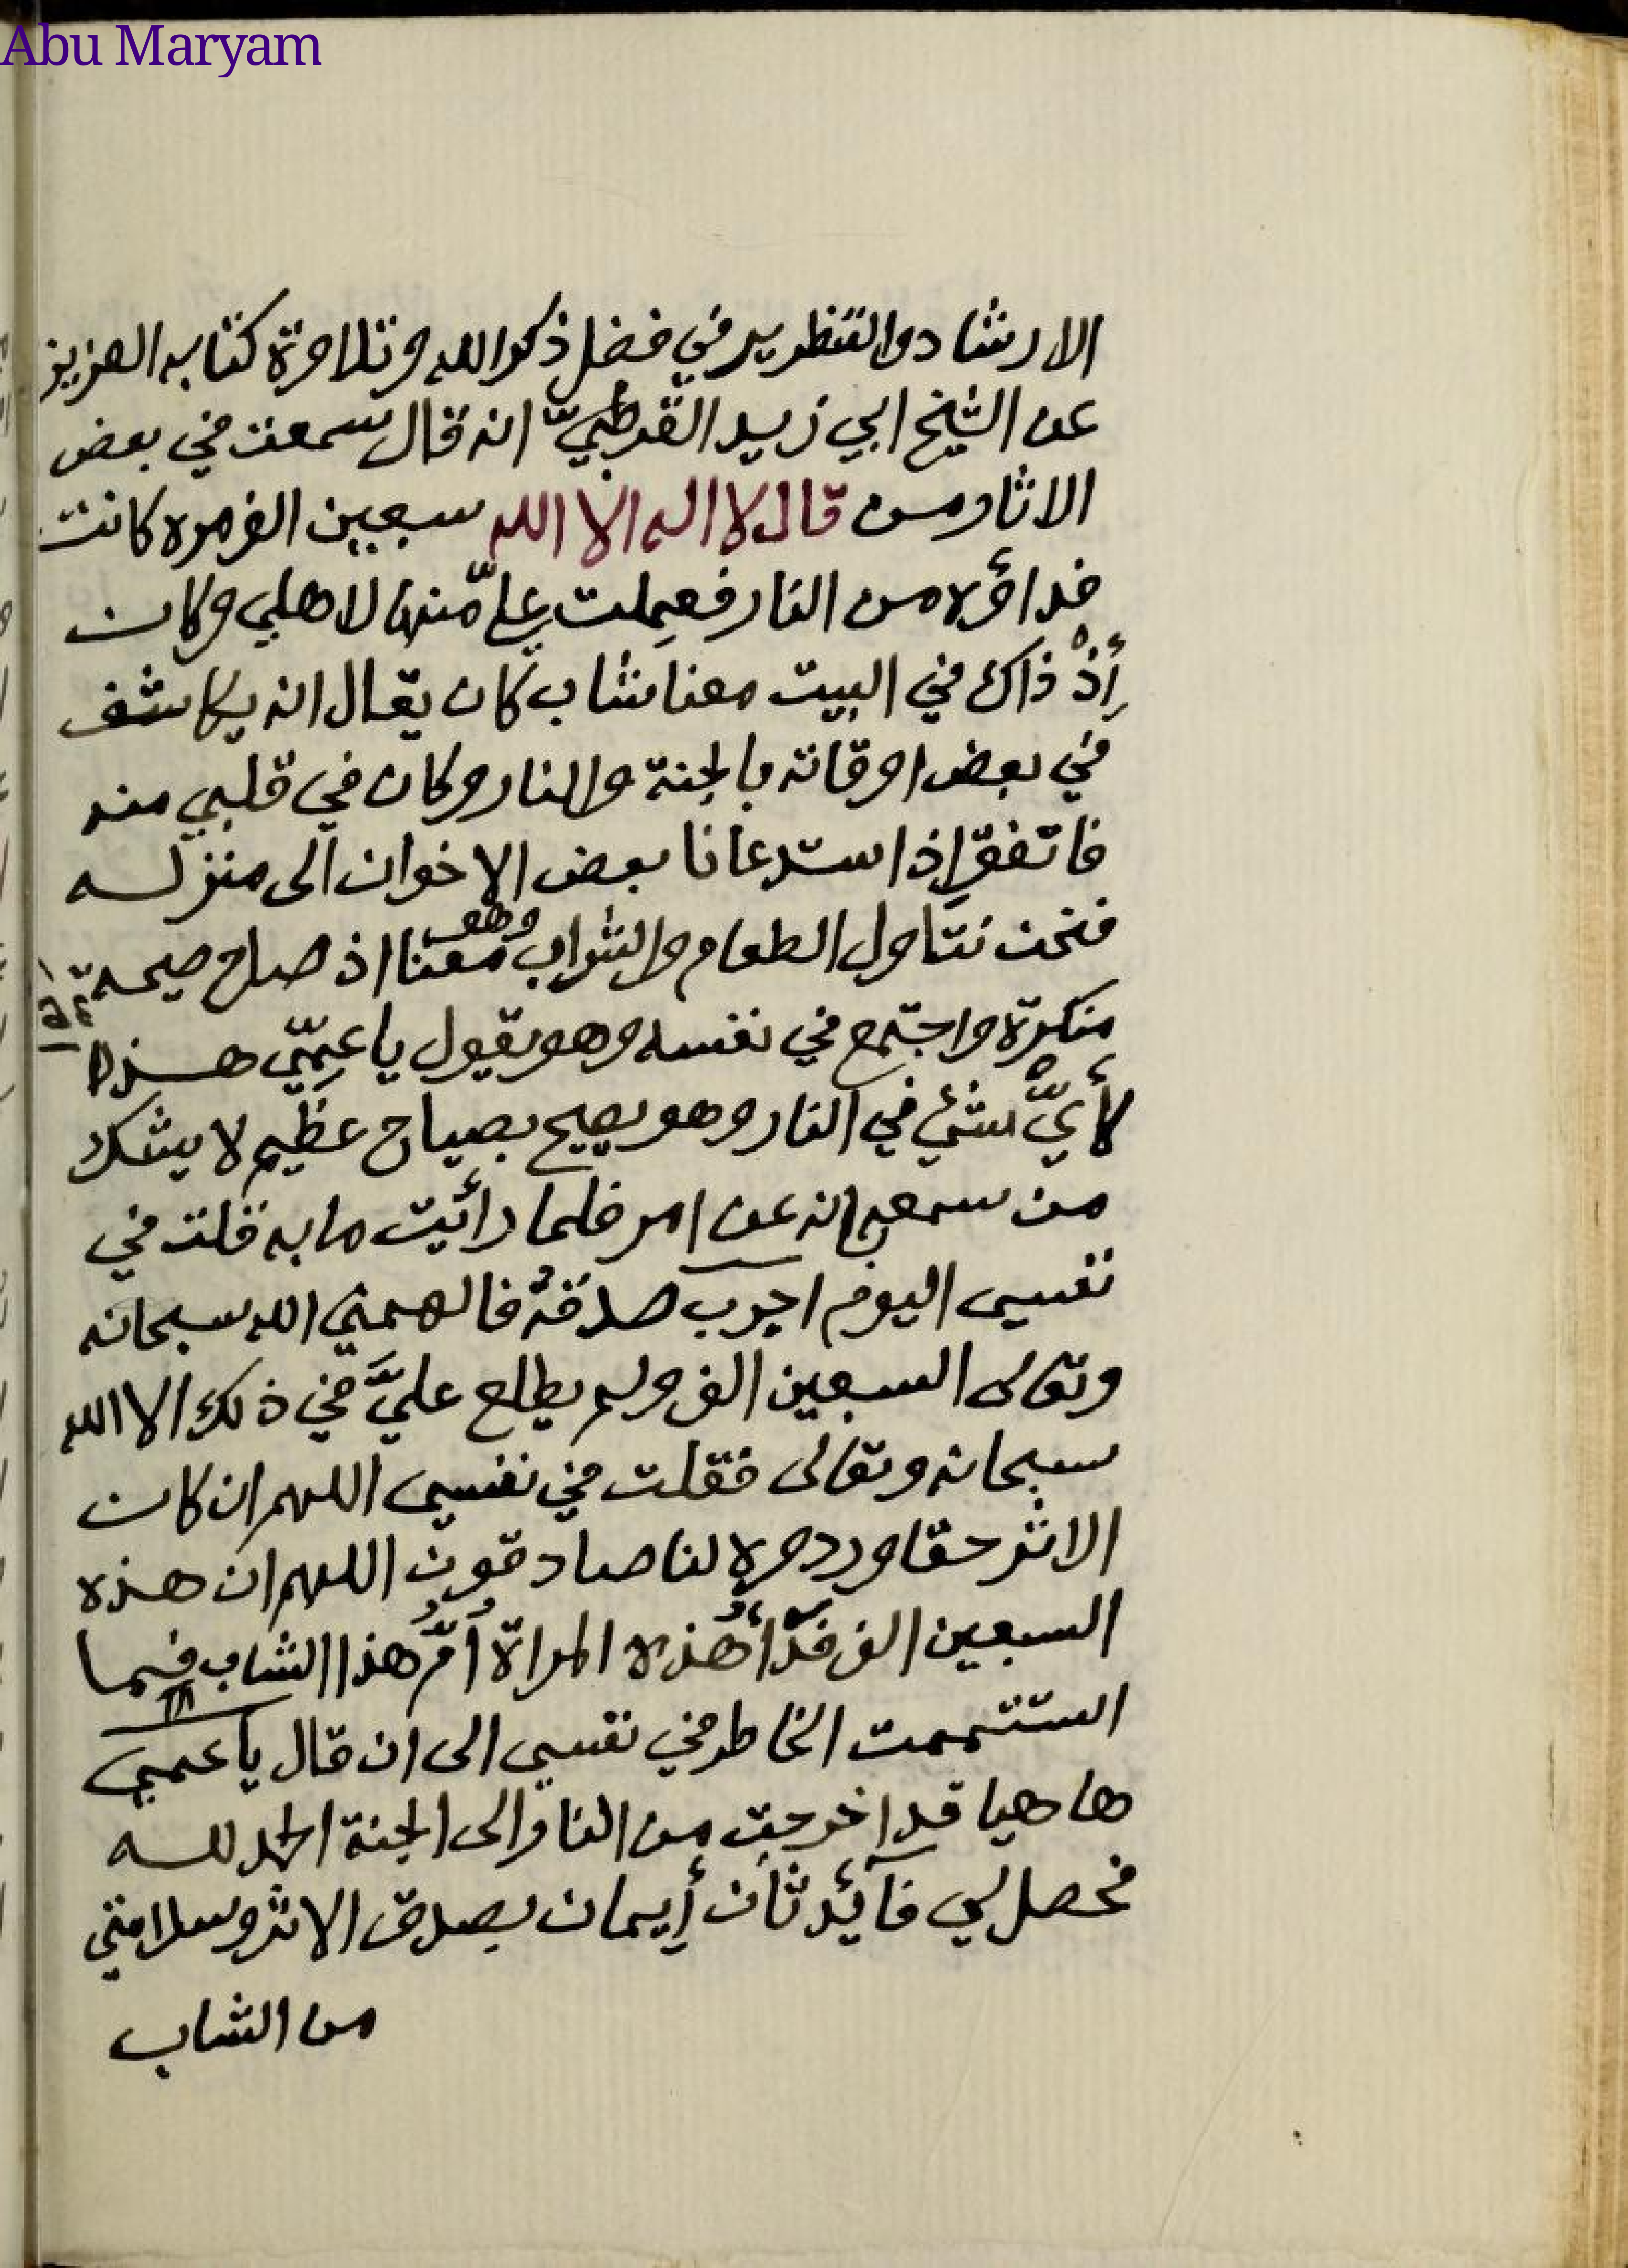 Abu Maryam
الارشاد والتنظريد في فضل ذكر الله وتلاوة كتابه العزيز
عن الشيخ ابي زيد القرطبيّ انه قال سمعت في بعض
الاثار من قال لا اله الا الله سبعين الف مره كانت
فداؤه من النار فعملت على منها لاهلي وكان
إذْ ذاك في البيت معنا شاب كان يقال انه يكاشف
في بعض اوقاته بالجنة والنار وكان في قلبي منه
فاتفق اذ استدعانا بعض الاخوان الى منزله
فنحن نتناول الطعام والشراب وهو معنا اذ صاح صيحة
منكرة واجتمع في نفسه وهو يقول يا عمّي هذه
لأيّ شئ في النار وهو يصيح بصياح عظيم لا يشك
من سمعه انه عن امر فلما رأيت ما به قلت في
نفسي اليوم اجرب صدقه فالهمني الله سبحانه
وتعالى السبعين الف ولم يطلع عليَّ في ذلك الا الله
سبحانه وتعالى فقلت في نفسي اللهم ان كان
الاثر حقا وردوه لنا صادقون اللهم ان هذه
السبعين الف فدّأ هذه المراة أمّ هذا الشاب فما
استتممت الخاطر في نفسي الى ان قال يا عمي
ها هيا قد اخرجت من النار الى الجنة الحمد لله
فحصل لي فآئدتان أيمان بصدق الاثر وسلامتي
من الشاب